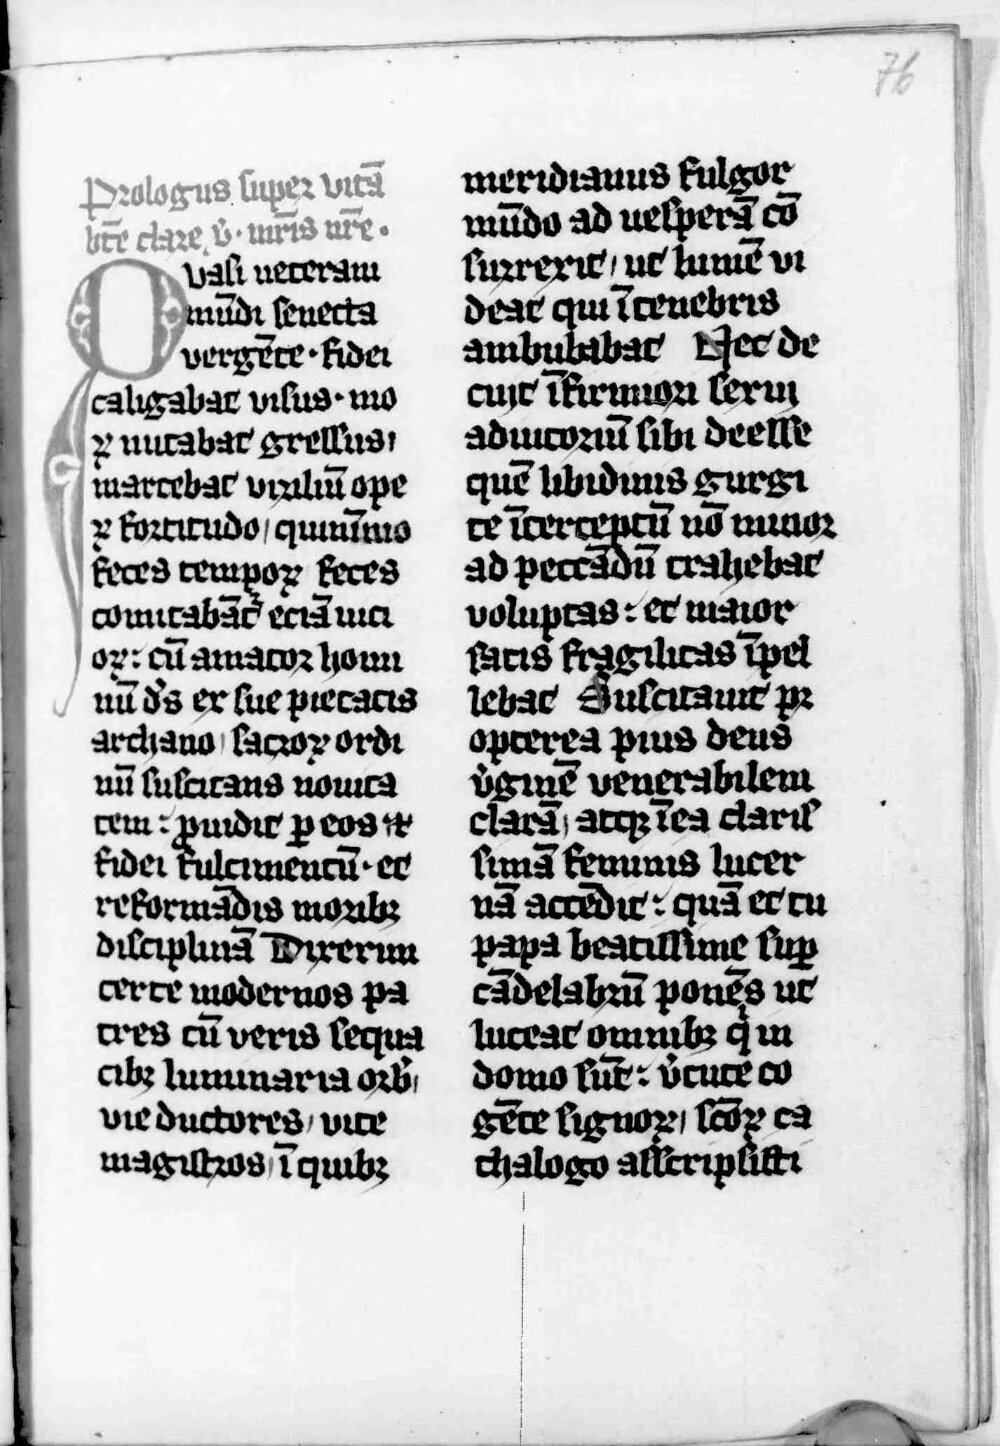 76
Prologus super vitā
btē clare v̓. mr̄is nr̄e.
Quasi ueteram
mūdi senecta
vergēte. fidei
caligabat visus. mo
ꝝ nutabat gressus,
marcebat viriliū ope
ꝝ fortitudo, quinīmo
feces tempoꝝ feces
comitabāt᷑ eciā vici
oꝝ: cū amator homi
nū d̓s ex sue pietatis
archano, sacroꝝ ordi
nū suscitans nouita
tem: ꝓuidit ꝑ eos et
fidei fulcimentū. et
reformādis moribꝫ
disciplinā Dixerim
certe modernos pa
tres cū veris sequa
cibꝫ luminaria orb̓,
vie ductores, vite
magistros, ī quibꝫ
meridianus fulgor
mūdo ad uesperā cō
surrexit, ut lumē vi
deat qui ī tenebris
ambulabat Nec de
cuit īfirmiori sexui
adiutoriū sibi deesse
quē libidinis gurgi
te īterceptū nō minor
ad peccādū trahebat
voluptas: et maior
satis fragilitas īpel
lebat Suscitauit pr
opterea pius deus
v̓ginē venerabilem
clarā, atqꝫ ī ea claris
simā feminis lucer
nā accēdit: quā et tu
papa beatissime suꝑ
cādelabrū ponēs ut
luceat omnibꝫ qͥ in
domo sūt: v̓tute co
gēte signoꝝ, scōꝝ ca
thalogo asscripsisti